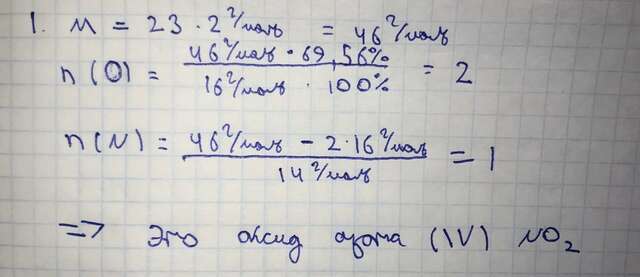 1. M = 23 · 2 г/моль = 46 г/моль
n(O) = (46 г/моль · 69,56%) / (16 г/моль · 100%) = 2
n(N) = (46 г/моль - 2·16 г/моль) / (14 г/моль) = 1
=> Это оксид азота (IV) NO₂